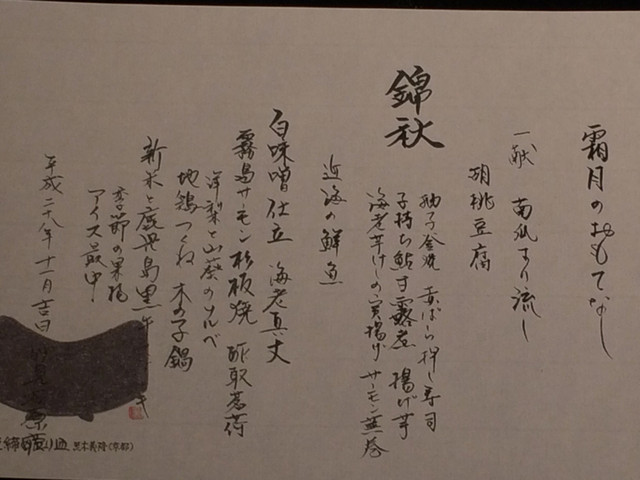 霜月のおもてなし
一献 南瓜すり流し
胡桃豆腐
錦秋
柚子釜焼 押し寿司
子持ち鮎甘露煮 揚げ芋
海老芋けしの実揚げ サーモン蕪巻
近海の鮮魚
白味噌仕立 海老真丈
霧島サーモン杉板焼 酢取茗荷
洋梨と山葵のソルベ
地鶏つくね 木の子鍋
新米と鹿児島黒牛
季節の果物
アイス最中
平成二十八年 十一月吉日
黒木義隆(京都)